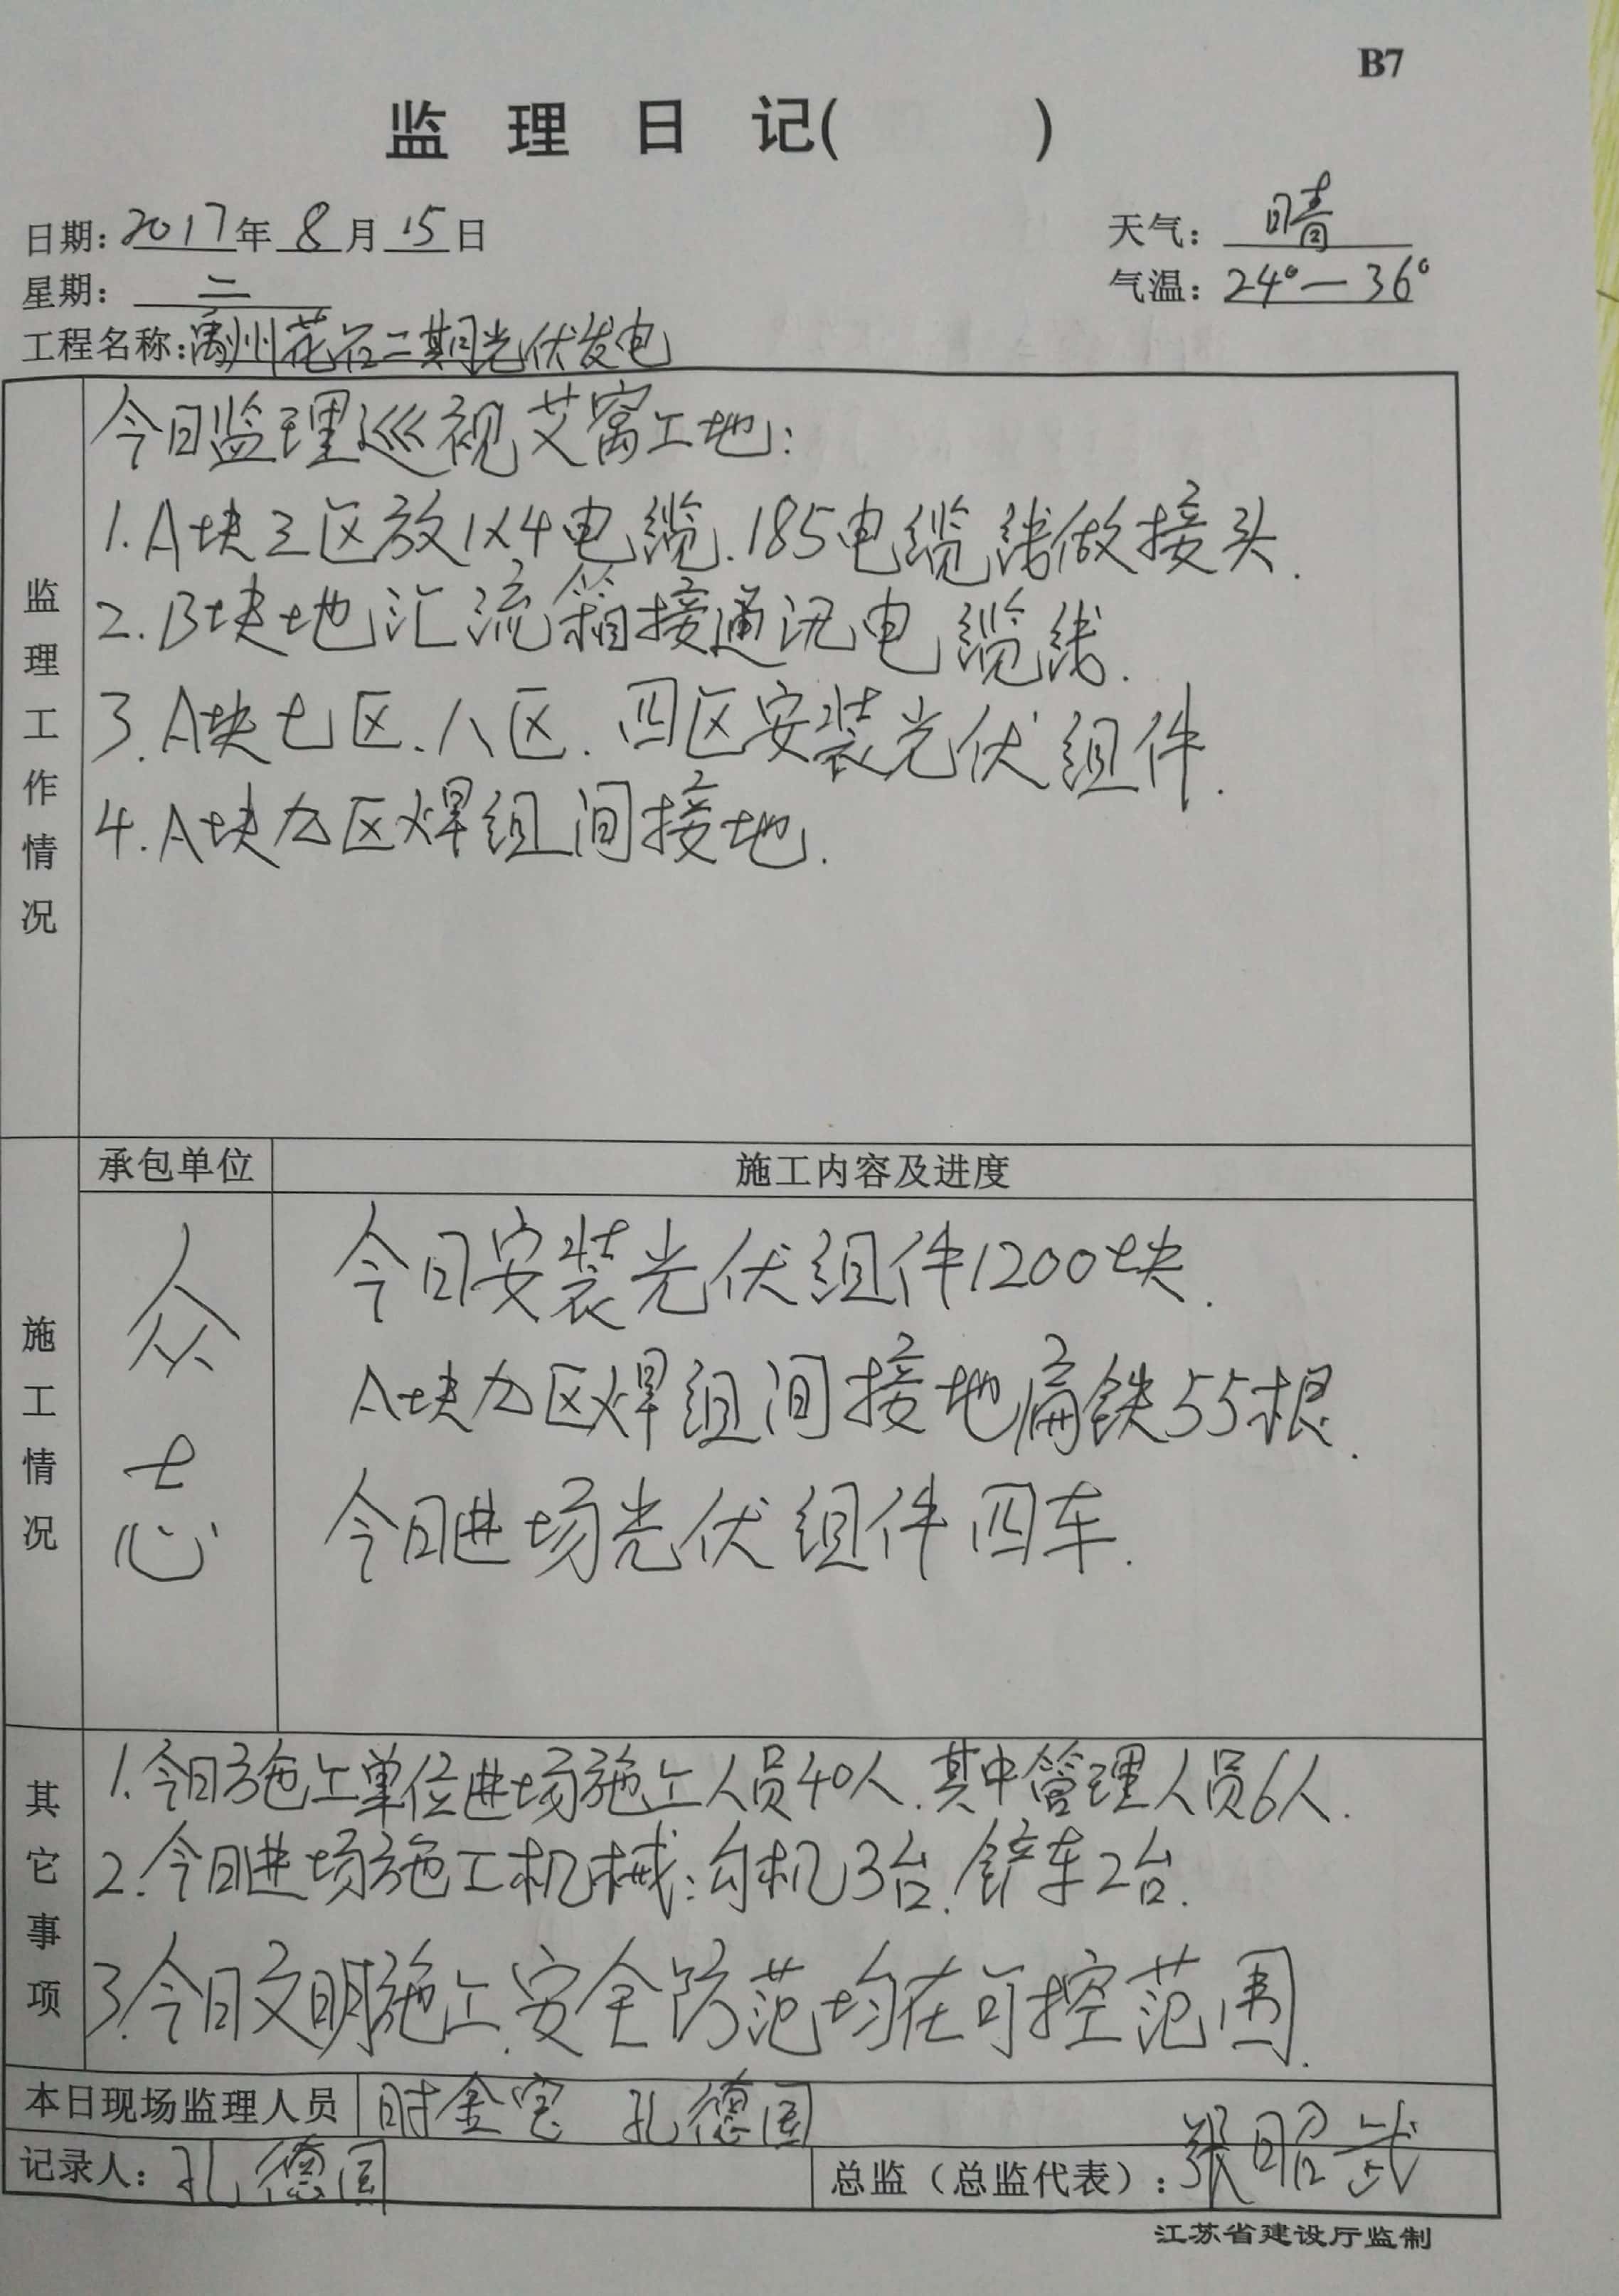 B7
监 理 日 记( )
日期: 2017年 8 月 15 日
天气: 晴
星期: 二
气温: 24°—36°
工程名称: 禹州花石二期光伏发电
监理工作情况
今日监理巡视艾窝工地:
1.A块三区放1X4电缆.185电缆线做接头.
2.B块地汇流箱接通讯电缆线.
3.A块七区.八区.四区安装光伏组件.
4.A块九区焊组间接地.
施工情况
承包单位
施工内容及进度
众志
今日安装光伏组件1200块.
A块九区焊组间接地扁铁55根.
今日进场光伏组件四车.
其它事项
1.今日施工单位进场施工人员40人.其中管理人员6人.
2.今日进场施工机械:勾机3台.铲车2台.
3.今日文明施工.安全防范均在可控范围.
本日现场监理人员 时金宝 孔德国
记录人: 孔德国
总监（总监代表）: 张昭武
江苏省建设厅监制